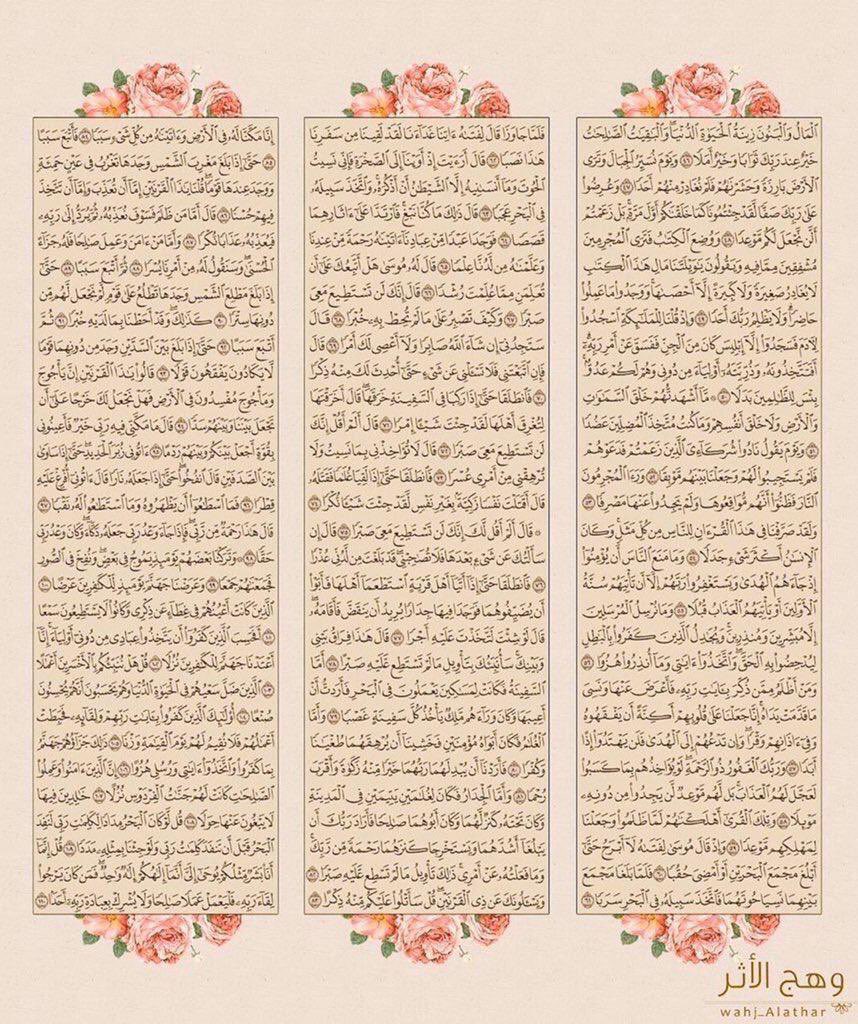 ٱلمال وٱلبنون زينة ٱلحيوة ٱلدنيا وٱلبقيت ٱلصلحت
خير عند ربك ثوابا وخير أملا ٤٦ ويوم نسير ٱلجبال وترى
ٱلأرض بارزة وحشرنهم فلم نغادر منهم أحدا ٤٧ وعرضوا
على ربك صفا لقد جئتمونا كما خلقنكم أول مرة بل زعمتم
ألن نجعل لكم موعدا ٤٨ ووضع ٱلكتب فترى ٱلمجرمين
مشفقين مما فيه ويقولون يويلتنا مال هذا ٱلكتب
لا يغادر صغيرة ولا كبيرة إلا أحصىها ووجدوا ما عملوا
حاضرا ولا يظلم ربك أحدا ٤٩ وإذ قلنا للملئكة ٱسجدوا
لأدم فسجدوا إلا إبليس كان من ٱلجن ففسق عن أمر ربه
أفتتخذونه وذريته أولياء من دوني وهم لكم عدو
بئس للظلمين بدلا ٥٠ ما أشهدتهم خلق ٱلسموت
وٱلأرض ولا خلق أنفسهم وما كنت متخذ ٱلمضلين عضدا
٥١ ويوم يقول نادوا شركاءي ٱلذين زعمتم فدعوهم
فلم يستجيبوا لهم وجعلنا بينهم موبقا ٥٢ ورءا ٱلمجرمون
ٱلنار فظنوا أنهم مواقعوها ولم يجدوا عنها مصرفا ٥٣
ولقد صرفنا في هذا ٱلقرءان للناس من كل مثل وكان
ٱلإنسن أكثر شيء جدلا ٥٤ وما منع ٱلناس أن يؤمنوا
إذ جاءهم ٱلهدى ويستغفروا ربهم إلا أن تأتيهم سنة
ٱلأولين أو يأتيهم ٱلعذاب قبلا ٥٥ وما نرسل ٱلمرسلين
إلا مبشرين ومنذرين ويجدل ٱلذين كفروا بٱلبطل
ليدحضوا به ٱلحق وٱتخذوا ءايتي وما أنذروا هزوا ٥٦
ومن أظلم ممن ذكر بءايت ربه فأعرض عنها ونسي
ما قدمت يداه إنا جعلنا على قلوبهم أكنة أن يفقهوه
وفي ءاذانهم وقرا وإن تدعهم إلى ٱلهدى فلن يهتدوا إذا
أبدا ٥٧ وربك ٱلغفور ذو ٱلرحمة لو يؤاخذهم بما كسبوا
لعجل لهم ٱلعذاب بل لهم موعد لن يجدوا من دونه
موئلا ٥٨ وتلك ٱلقرى أهلكنهم لما ظلموا وجعلنا
لمهلكهم موعدا ٥٩ وإذ قال موسى لفتىه لا أبرح حتى
أبلغ مجمع ٱلبحرين أو أمضي حقبا ٦٠ فلما بلغا مجمع
بينهما نسيا حوتهما فٱتخذ سبيله في ٱلبحر سربا ٦١
فلما جاوزا قال لفتىه ءاتنا غداءنا لقد لقينا من سفرنا
هذا نصبا ٦٢ قال أرءيت إذ أوينا إلى ٱلصخرة فإني نسيت
ٱلحوت وما أنسىنيه إلا ٱلشيطن أن أذكره وٱتخذ سبيله
في ٱلبحر عجبا ٦٣ قال ذلك ما كنا نبغ فٱرتدا على ءاثارهما
قصصا ٦٤ فوجدا عبدا من عبادنا ءاتينه رحمة من عندنا
وعلمنه من لدنا علما ٦٥ قال له موسى هل أتبعك على أن
تعلمن مما علمت رشدا ٦٦ قال إنك لن تستطيع معي
صبرا ٦٧ وكيف تصبر على ما لم تحط به خبرا ٦٨ قال
ستجدني إن شاء ٱلله صابرا ولا أعصي لك أمرا ٦٩ قال
فإن ٱتبعتني فلا تسئلني عن شيء حتى أحدث لك منه ذكرا
٧٠ فٱنطلقا حتى إذا ركبا في ٱلسفينة خرقها قال أخرقتها
لتغرق أهلها لقد جئت شيئا إمرا ٧١ قال ألم أقل إنك
لن تستطيع معي صبرا ٧٢ قال لا تؤاخذني بما نسيت ولا
ترهقني من أمري عسرا ٧٣ فٱنطلقا حتى إذا لقيا غلما فقتله
قال أقتلت نفسا زكية بغير نفس لقد جئت شيئا نكرا ٧٤
۞ قال ألم أقل لك إنك لن تستطيع معي صبرا ٧٥ قال إن
سألتك عن شيء بعدها فلا تصحبني قد بلغت من لدني عذرا
٧٦ فٱنطلقا حتى إذا أتيا أهل قرية ٱستطعما أهلها فأبوا
أن يضيفوهما فوجدا فيها جدارا يريد أن ينقض فأقامه
قال لو شئت لتخذت عليه أجرا ٧٧ قال هذا فراق بيني
وبينك سأنبئك بتأويل ما لم تستطع عليه صبرا ٧٨ أما
ٱلسفينة فكانت لمسكين يعملون في ٱلبحر فأردت أن
أعيبها وكان وراءهم ملك يأخذ كل سفينة غصبا ٧٩ وأما
ٱلغلم فكان أبواه مؤمنين فخشينا أن يرهقهما طغينا
وكفرا ٨٠ فأردنا أن يبدلهما ربهما خيرا منه زكوة وأقرب
رحما ٨١ وأما ٱلجدار فكان لغلمين يتيمين في ٱلمدينة
وكان تحته كنز لهما وكان أبوهما صلحا فأراد ربك أن
يبلغا أشدهما ويستخرجا كنزهما رحمة من ربك
وما فعلته عن أمري ذلك تأويل ما لم تسطع عليه صبرا ٨٢
ويسئلونك عن ذي ٱلقرنين قل سأتلوا عليكم منه ذكرا ٨٣
إنا مكنا له في ٱلأرض وءاتينه من كل شيء سببا ٨٤ فأتبع سببا
٨٥ حتى إذا بلغ مغرب ٱلشمس وجدها تغرب في عين حمئة
ووجد عندها قوما قلنا يذا ٱلقرنين إما أن تعذب وإما أن تتخذ
فيهم حسنا ٨٦ قال أما من ظلم فسوف نعذبه ثم يرد إلى ربه
فيعذبه عذابا نكرا ٨٧ وأما من ءامن وعمل صلحا فله جزاء
ٱلحسنى وسنقول له من أمرنا يسرا ٨٨ ثم أتبع سببا ٨٩ حتى
إذا بلغ مطلع ٱلشمس وجدها تطلع على قوم لم نجعل لهم من
دونها سترا ٩٠ كذلك وقد أحطنا بما لديه خبرا ٩١ ثم
أتبع سببا ٩٢ حتى إذا بلغ بين ٱلسدين وجد من دونهما قوما
لا يكادون يفقهون قولا ٩٣ قالوا يذا ٱلقرنين إن يأجوج
ومأجوج مفسدون في ٱلأرض فهل نجعل لك خرجا على أن
تجعل بيننا وبينهم سدا ٩٤ قال ما مكني فيه ربي خير فأعينوني
بقوة أجعل بينكم وبينهم ردما ٩٥ ءاتوني زبر ٱلحديد حتى إذا ساوى
بين ٱلصدفين قال ٱنفخوا حتى إذا جعله نارا قال ءاتوني أفرغ عليه
قطرا ٩٦ فما ٱسطعوا أن يظهروه وما ٱستطعوا له نقبا ٩٧
قال هذا رحمة من ربي فإذا جاء وعد ربي جعله دكاء وكان وعد ربي
حقا ٩٨ وتركنا بعضهم يومئذ يموج في بعض ونفخ في ٱلصور
فجمعنهم جمعا ٩٩ وعرضنا جهنم يومئذ للكفرين عرضا ١٠٠
ٱلذين كانت أعينهم في غطاء عن ذكري وكانوا لا يستطيعون سمعا
١٠١ أفحسب ٱلذين كفروا أن يتخذوا عبادي من دوني أولياء إنا
أعتدنا جهنم للكفرين نزلا ١٠٢ قل هل ننبئكم بٱلأخسرين أعملا
١٠٣ ٱلذين ضل سعيهم في ٱلحيوة ٱلدنيا وهم يحسبون أنهم يحسنون
صنعا ١٠٤ أولئك ٱلذين كفروا بءايت ربهم ولقائه فحبطت
أعملهم فلا نقيم لهم يوم ٱلقيمة وزنا ١٠٥ ذلك جزاؤهم جهنم
بما كفروا وٱتخذوا ءايتي ورسلي هزوا ١٠٦ إن ٱلذين ءامنوا وعملوا
ٱلصلحت كانت لهم جنت ٱلفردوس نزلا ١٠٧ خلدين فيها
لا يبغون عنها حولا ١٠٨ قل لو كان ٱلبحر مدادا لكلمت ربي لنفد
ٱلبحر قبل أن تنفد كلمت ربي ولو جئنا بمثله مددا ١٠٩ قل إنما
أنا بشر مثلكم يوحى إلي أنما إلهكم إله وحد فمن كان يرجوا
لقاء ربه فليعمل عملا صلحا ولا يشرك بعبادة ربه أحدا ١١٠
وهج الأثر
wahj_Alathar